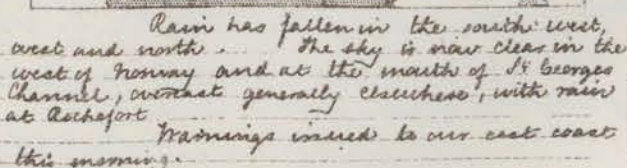 Rain has fallen in the south west,
west and north. The sky is now clear in the
west of Norway and at the mouth of St Georges
Channel, overcast generally elsewhere, with rain
at Rochefort
Warnings issued to our east coast
this morning.